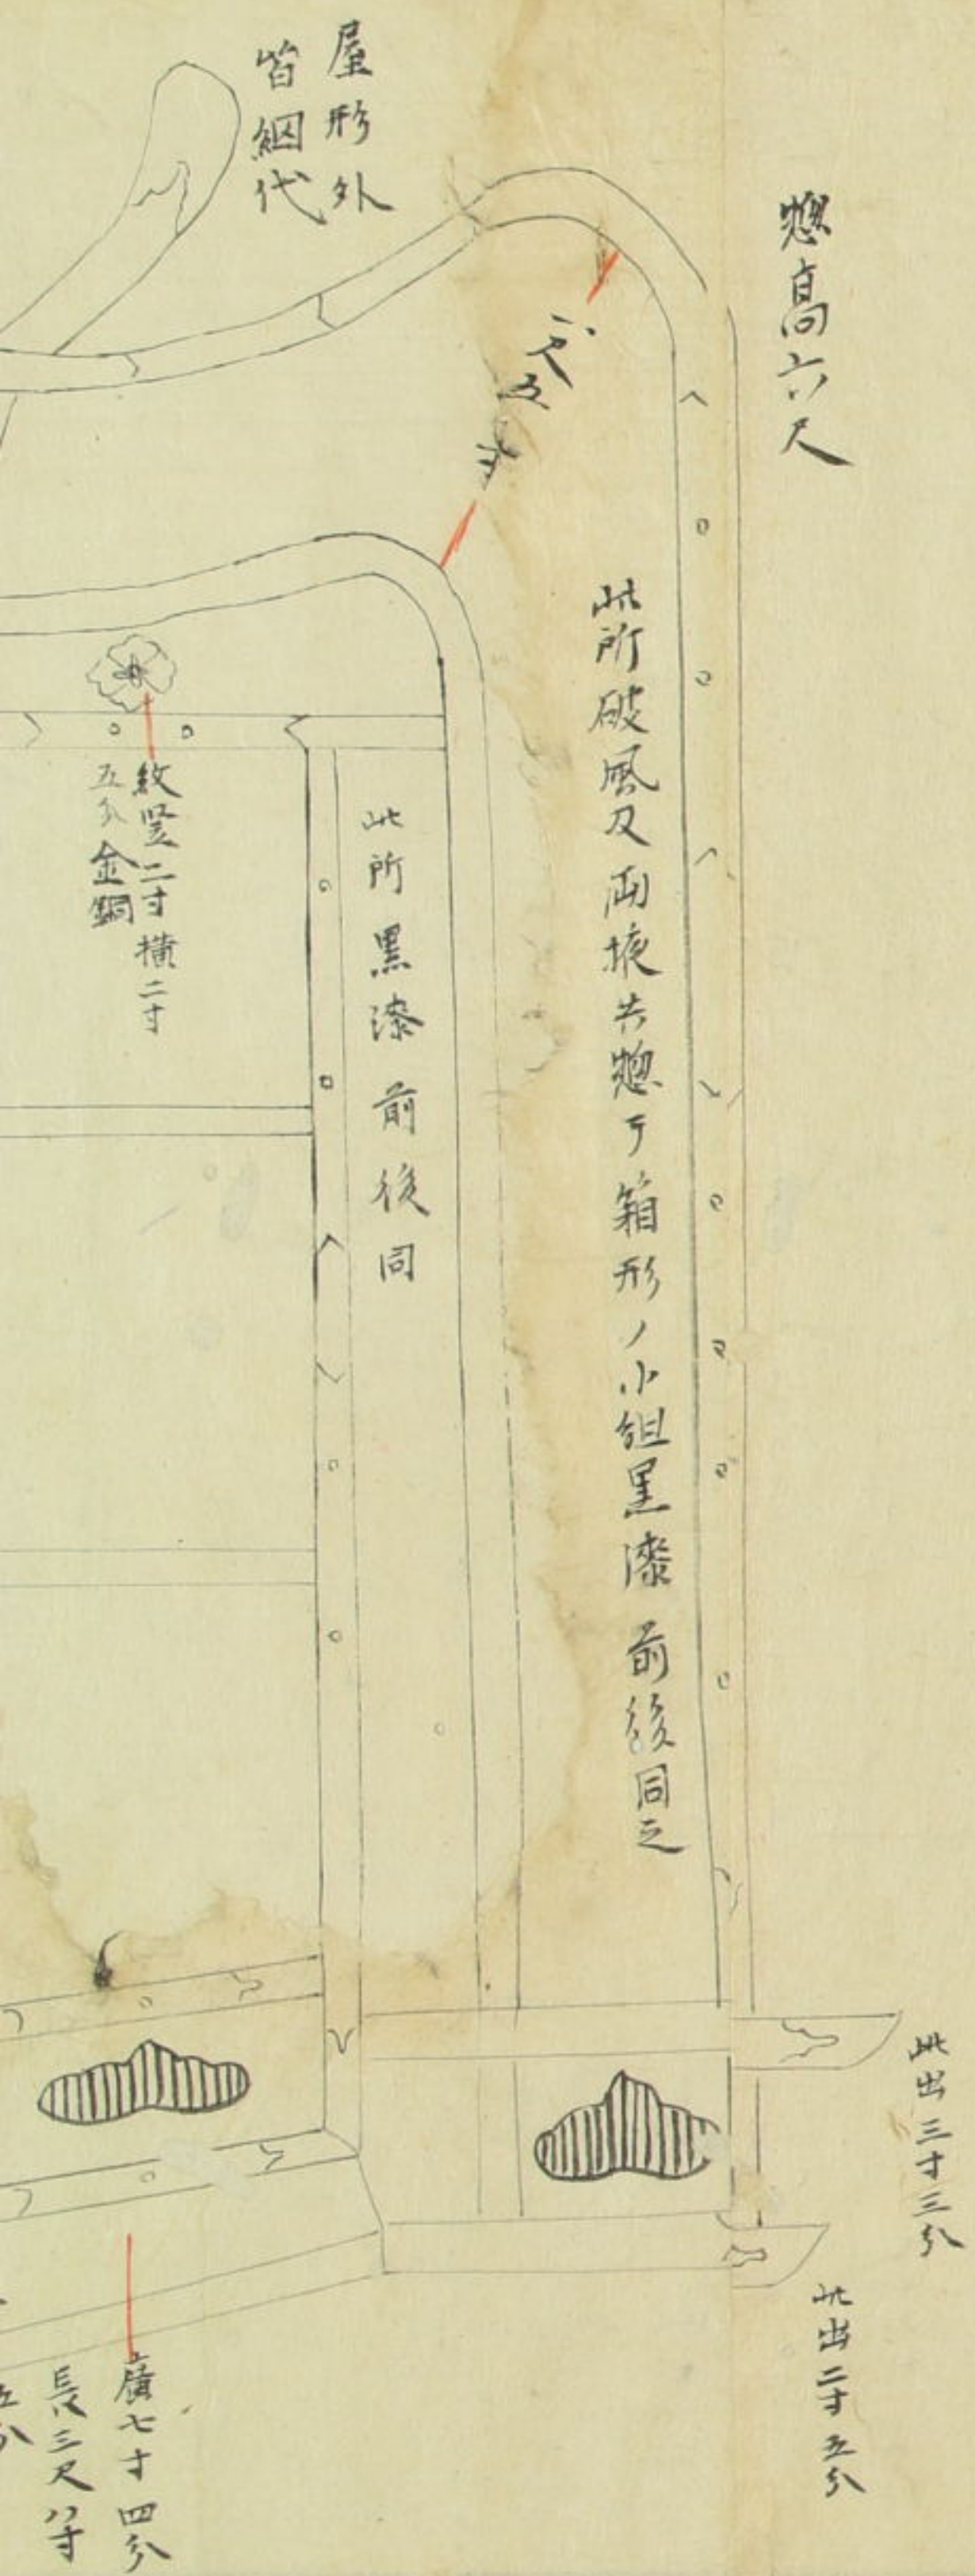 惣高六尺
屋形外
皆網代
一尺五寸
此所破風及両掖共惣テ箱形ノ小組黒漆 前後同之
此所黒漆 前後同
紋竪二寸横二寸
五分金銅
此出三寸三分
此出二寸五分
廣七寸四分
長三尺八寸
五分